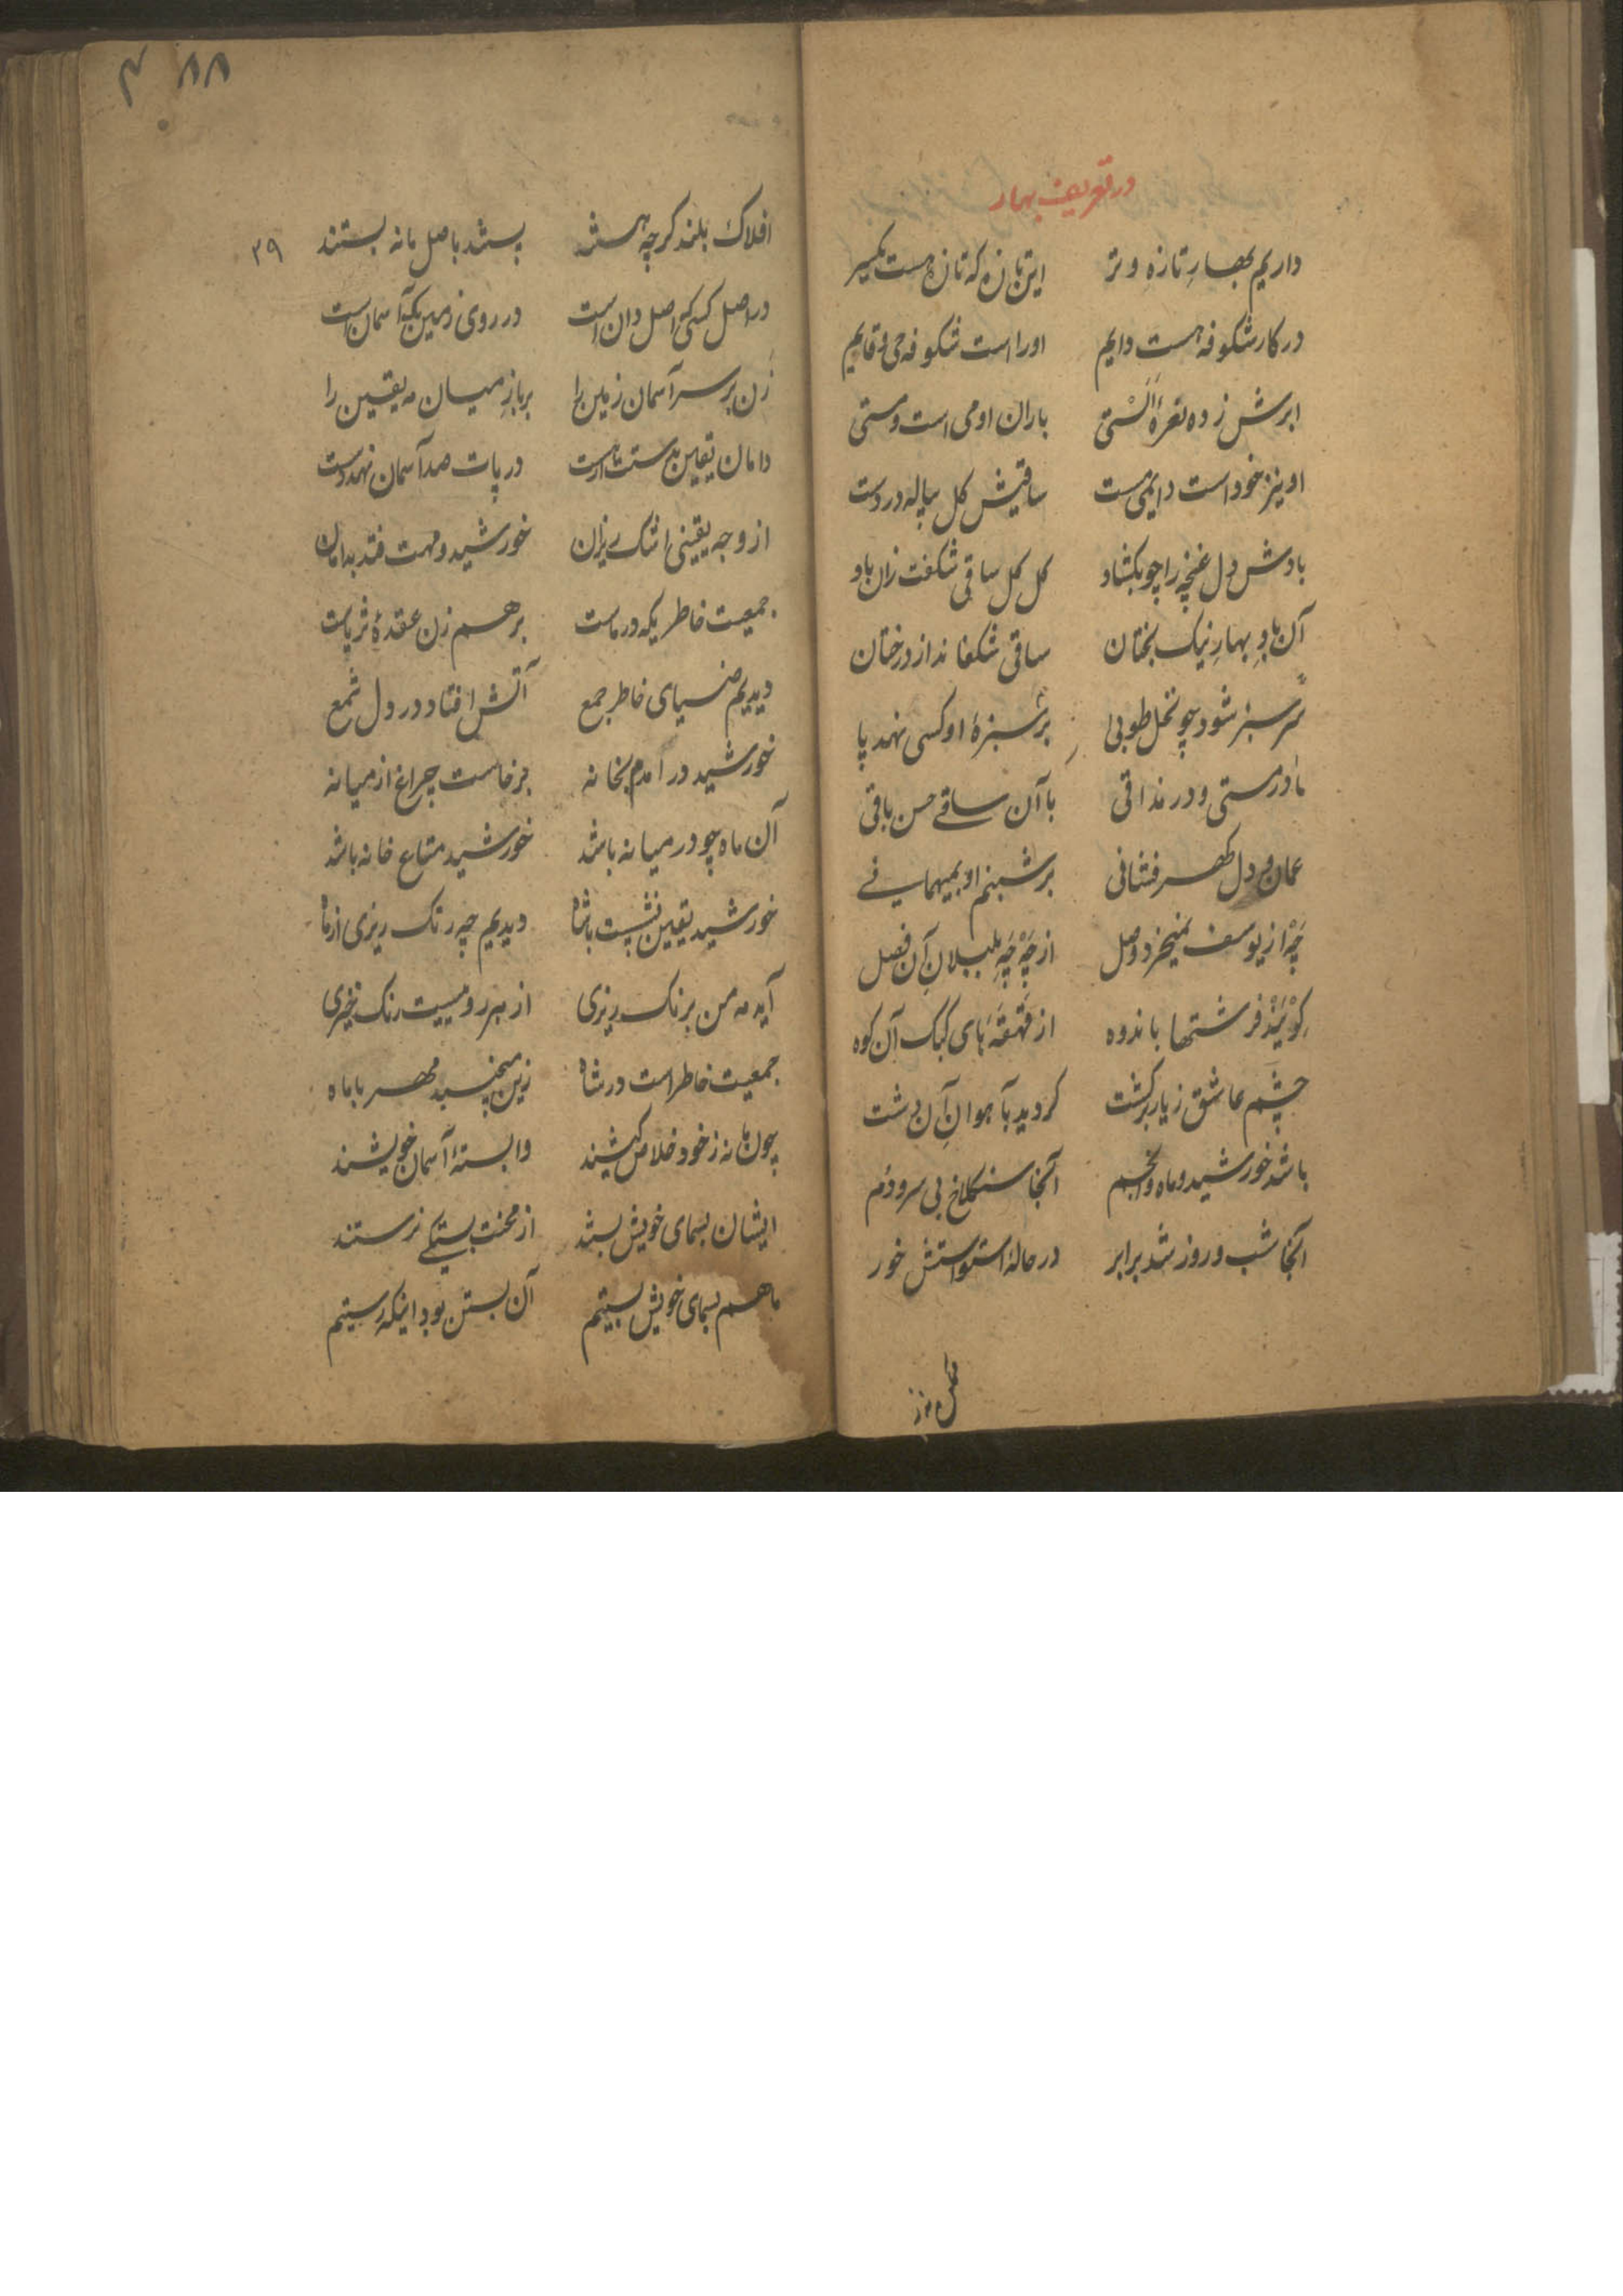 در تعریف بهار
داریم بهارِ تازهِ و تر این تازه که تازه هست یکسر
در کار شکوفه هست دایم اورا است شکوفه حی و قایم
ابرش زده نعرهٔ اَلَسْتی باران او می است و مستی
او نیز خود است دایمی مست ساقیش کل پیاله در دست
بادش دل غنچه را چو بکشاد کل کل ساقی شکفت زان باد
آن بادِ بهارِ نیک بختان ساقی شکفاند از درختان
سرسبز شود چو نخل طوبی بر سبزهٔ او کسی نهد پا
ما در مستی و در مذاقی با آن ساقی حسن باقی
عمان دل کهر فشانی بر شبنم او بمیهمانی
چَهْ از یوسف نمیخرد وصل از چَهْ چَهِ بلبلانِ آن فصل
کوْیَنْد فرشتها باندوه از قهقهَهای کبک آن کوه
چشم عاشق ز یار برکشت کردید بآهوانِ آن دشت
باشد خورشید و ماه و انجم آنجا سنکلاخ بی سر و دُم
آنجا شب و روز شد برابر در حالهٔ استواستش خور
۸۸
افلاک بلند کرچه هستند پستند باصل ما نه بستند ۳۹
در اصل کسی که اصل دان است در روی زمین یک آسمان است
زن بر سر آسمان زمین را بر باز میان مه یقین را
دامان یقین بدستت ار هست در پات صد آسمان نهد دست
از وجه یقینی اشک ریزان خورشید و مهت فتد بدامان
جمعیت خاطریکه در ماست برهم زن عقدهٔ ثریاست
دیدیم ضیای خاطر جمع آتش افتاد در دل شمع
خورشید در آمدم بخانه برخاست چراغ از میانه
آن ماه چو در میانه باشد خورشید متاع خانه باشد
خورشید یقین نشست با شاه دیدیم چه رنک ریزی از ماه
آید مه من برنک ریزی از مهر رومییت رنک خیزی
جمعیت خاطر است در شاه زین میچسبد مهر با ماه
چون ما نه ز خود خلاص کیشند وابستهٔ آسمان خویشند
ایشان بسمای خویش بستند از محنت بستکی نرستند
ما هم بسمای خویش بستیم آن بستن بود اینکه رستیم